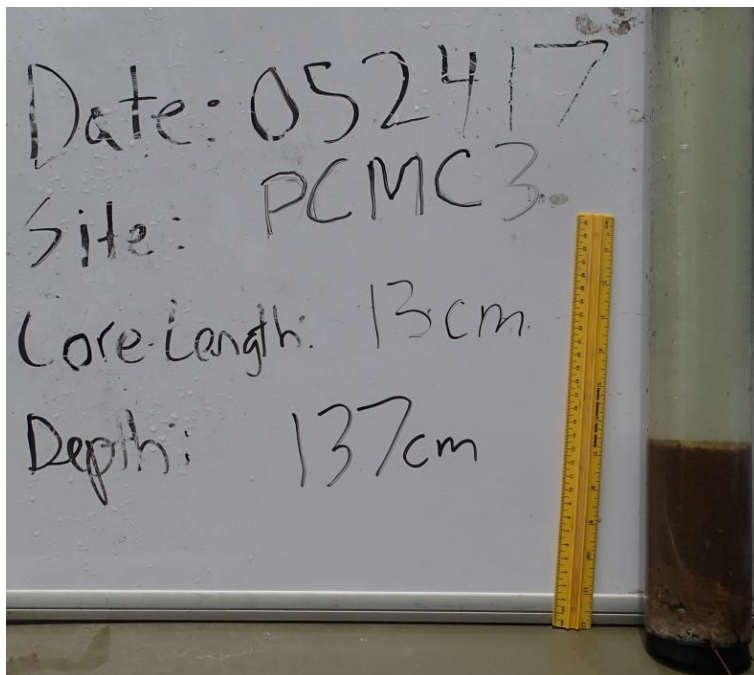 Date: 052417
Site: PCMC3
Core Length: 13cm
Depth: 137cm